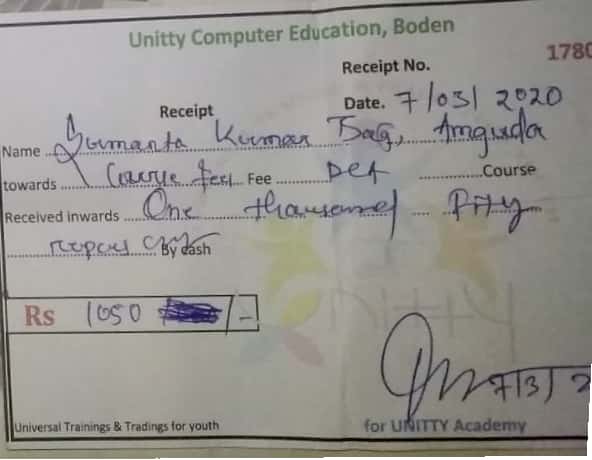 Unitty Computer Education, Boden
Receipt No. 1780
Receipt Date. 7/03/2020
Name Sumanta Kumar Bag, Amguda
towards Course fees Fee DCA Course
Received inwards One thousand Fifty
rupees only By cash
Rs 1050 /-
7/3/2
Universal Trainings & Tradings for youth for UNITTY Academy